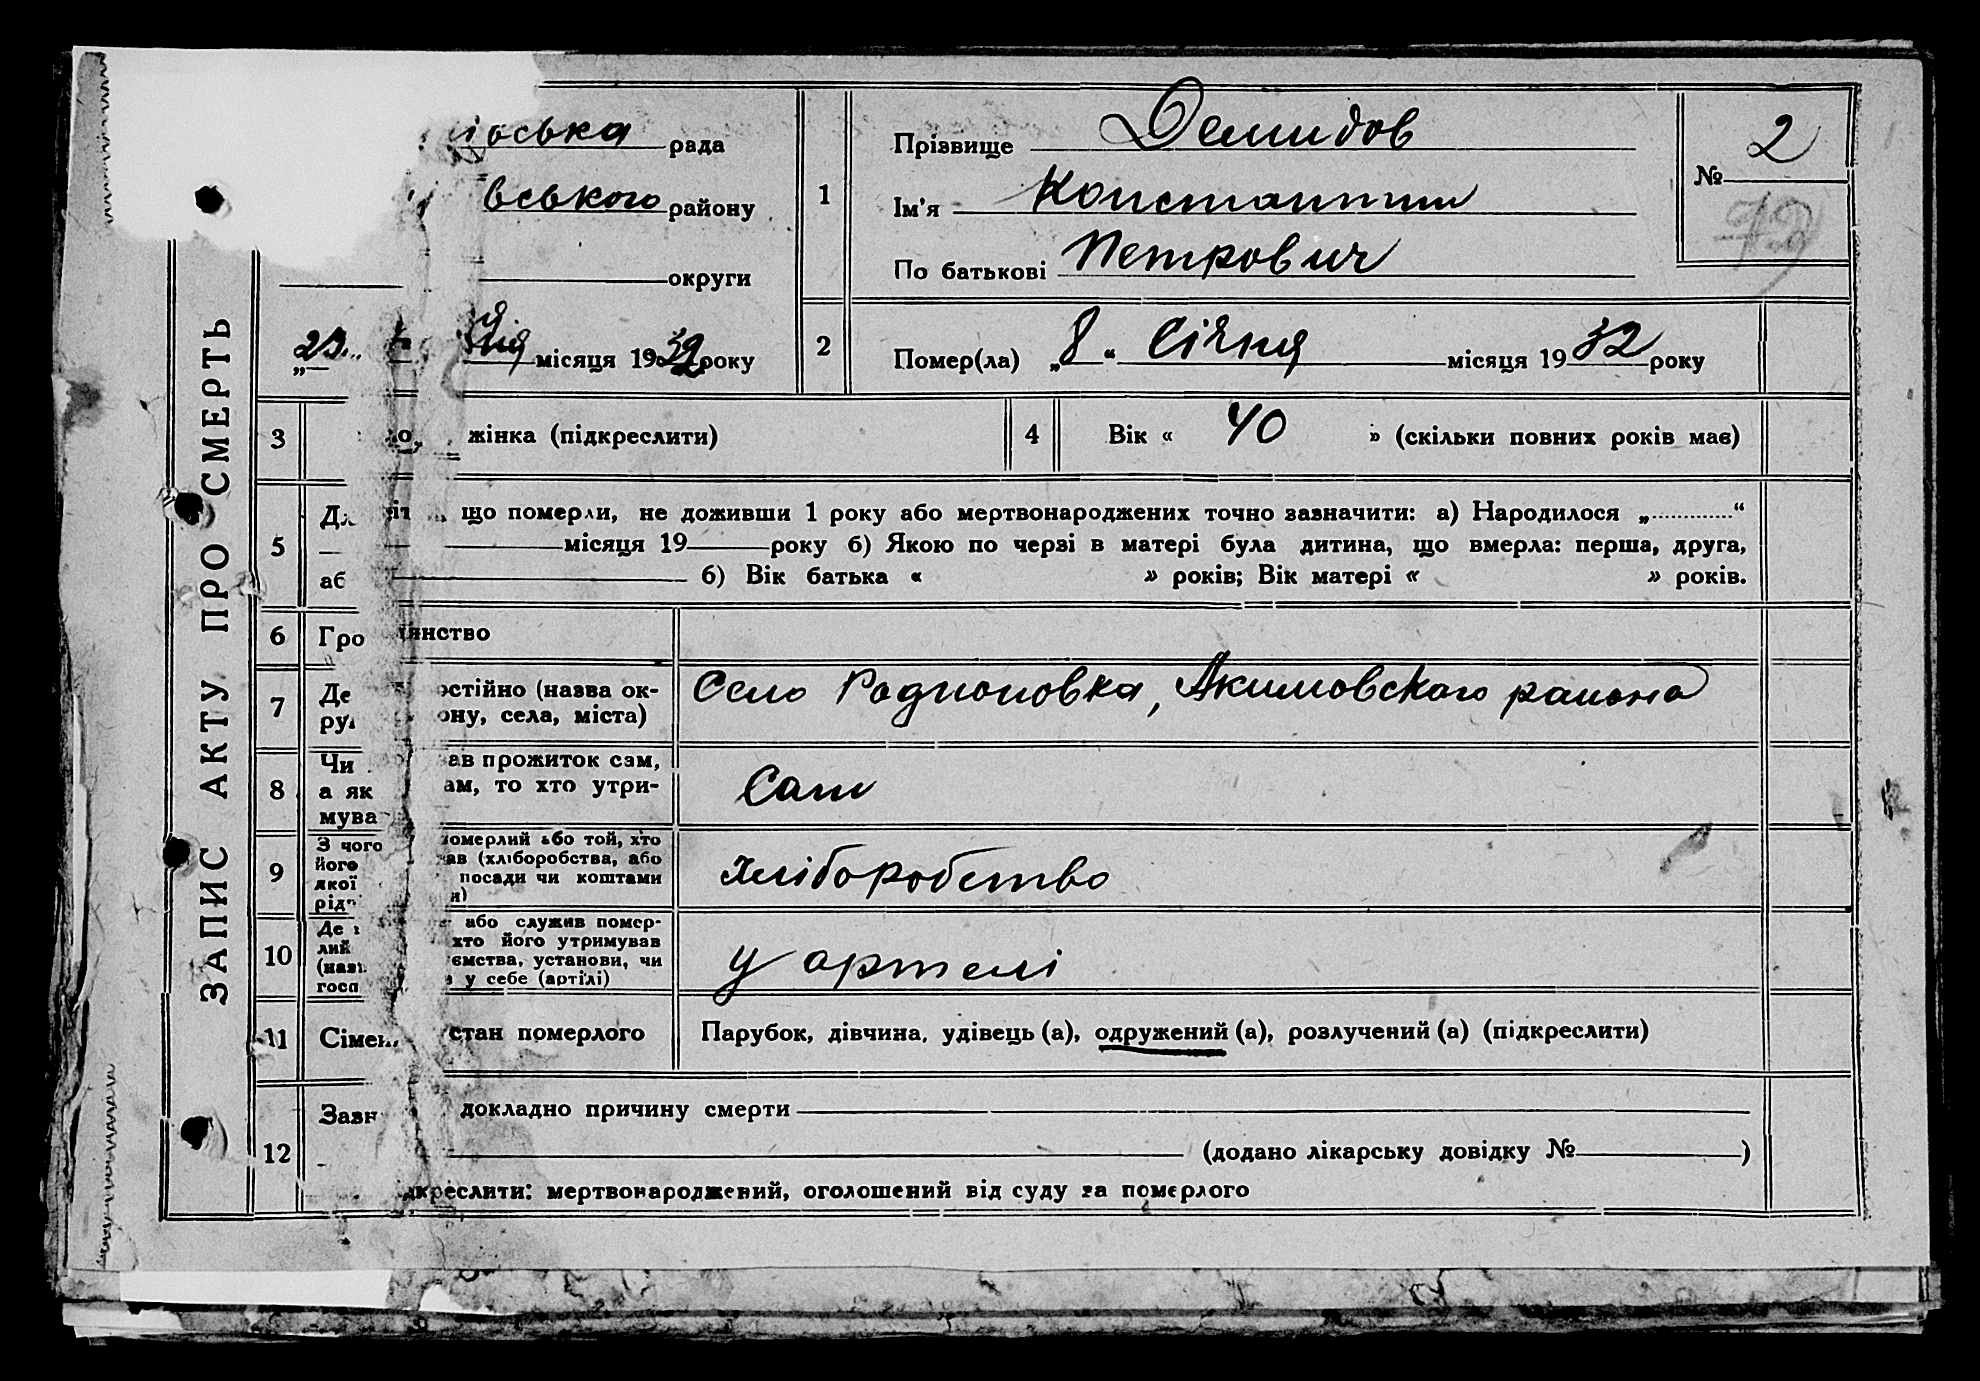 ЗАПИС АКТУ ПРО СМЕРТЬ
рада
вського району
округи
23 місяця 1932 року
1
Прізвище Демидов
Ім'я Константин
По батькові Петрович
№ 2
79
2
Помер(ла) „8“ Січня місяця 1932 року
3 жінка (підкреслити)
4 Вік « 40 » (скільки повних років має)
5 що померли, не доживши 1 року або мертвонароджених точно зазначити: а) Народилося „............“
місяця 19 року б) Якою по черзі в матері була дитина, що вмерла: перша, друга,
б) Вік батька « » років; Вік матері « » років.
6 Гро янство
7 Де остійно (назва ок-
ону, села, міста)
Село Родионовка, Акимовского района
8 Чи ав прожиток сам,
а як ам, то хто утри-
мува
Сам
9 З чого померлий або той, хто
його ав (хліборобства, або
якої посади чи коштами
рід
Хліборобство
10 Де або служив помер-
лий хто його утримував
(наз ємства, установи, чи
госп у себе (артілі)
у артелі
11 Сімей стан померлого
Парубок, дівчина, удівець (а), одружений (а), розлучений (а) (підкреслити)
12 Зазн докладно причину смерти
(додано лікарську довідку № )
дкреслити: мертвонароджений, оголошений від суду за померлого